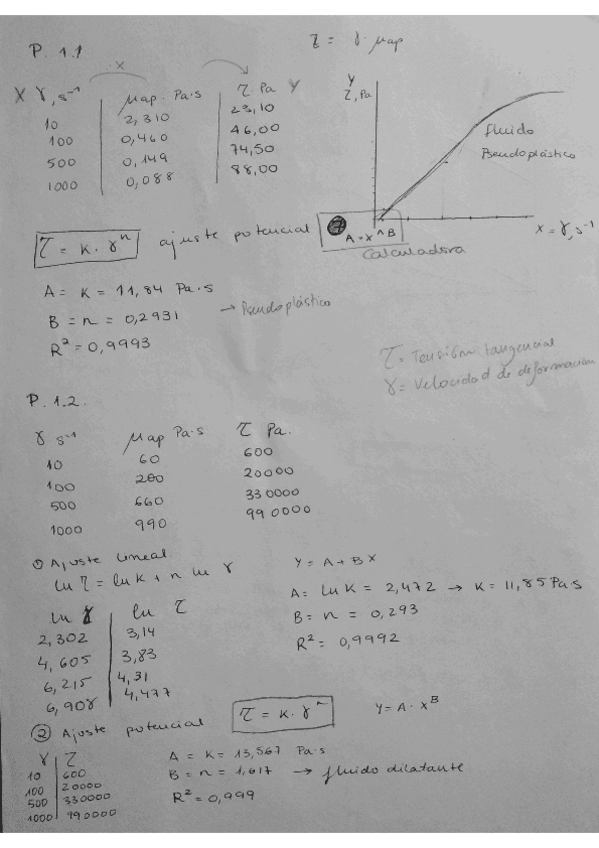 P. 1.1
τ = γ · μap
x
X γ, s⁻¹ μap. Pa·s τ. Pa Y
10 2,310 23,10
100 0,460 46,00
500 0,149 74,50
1000 0,088 88,00
Y
τ, Pa
fluido
Pseudoplástico
X = γ, s⁻¹
τ = K · γⁿ ajuste potencial
A·x^B
Calculadora
A = K = 11,84 Pa·s
B = n = 0,2931 → Pseudoplástico
R² = 0,9993
τ = Tensión tangencial
γ = Velocidad de deformación
P. 1.2.
γ s⁻¹ μap Pa·s τ Pa.
10 60 600
100 200 20000
500 660 330000
1000 990 990000
① Ajuste lineal
ln τ = ln K + n ln γ
Y = A + BX
A = ln K = 2,472 → K = 11,85 Pa·s
B = n = 0,293
R² = 0,9992
ln γ ln τ
2,302 3,14
4,605 3,83
6,215 4,31
6,908 4,477
② Ajuste potencial τ = K · γⁿ Y = A · X^B
γ τ
10 600
100 20000
500 330000
1000 990000
A = K = 13,567 Pa·s
B = n = 1,617 → fluido dilatante
R² = 0,999